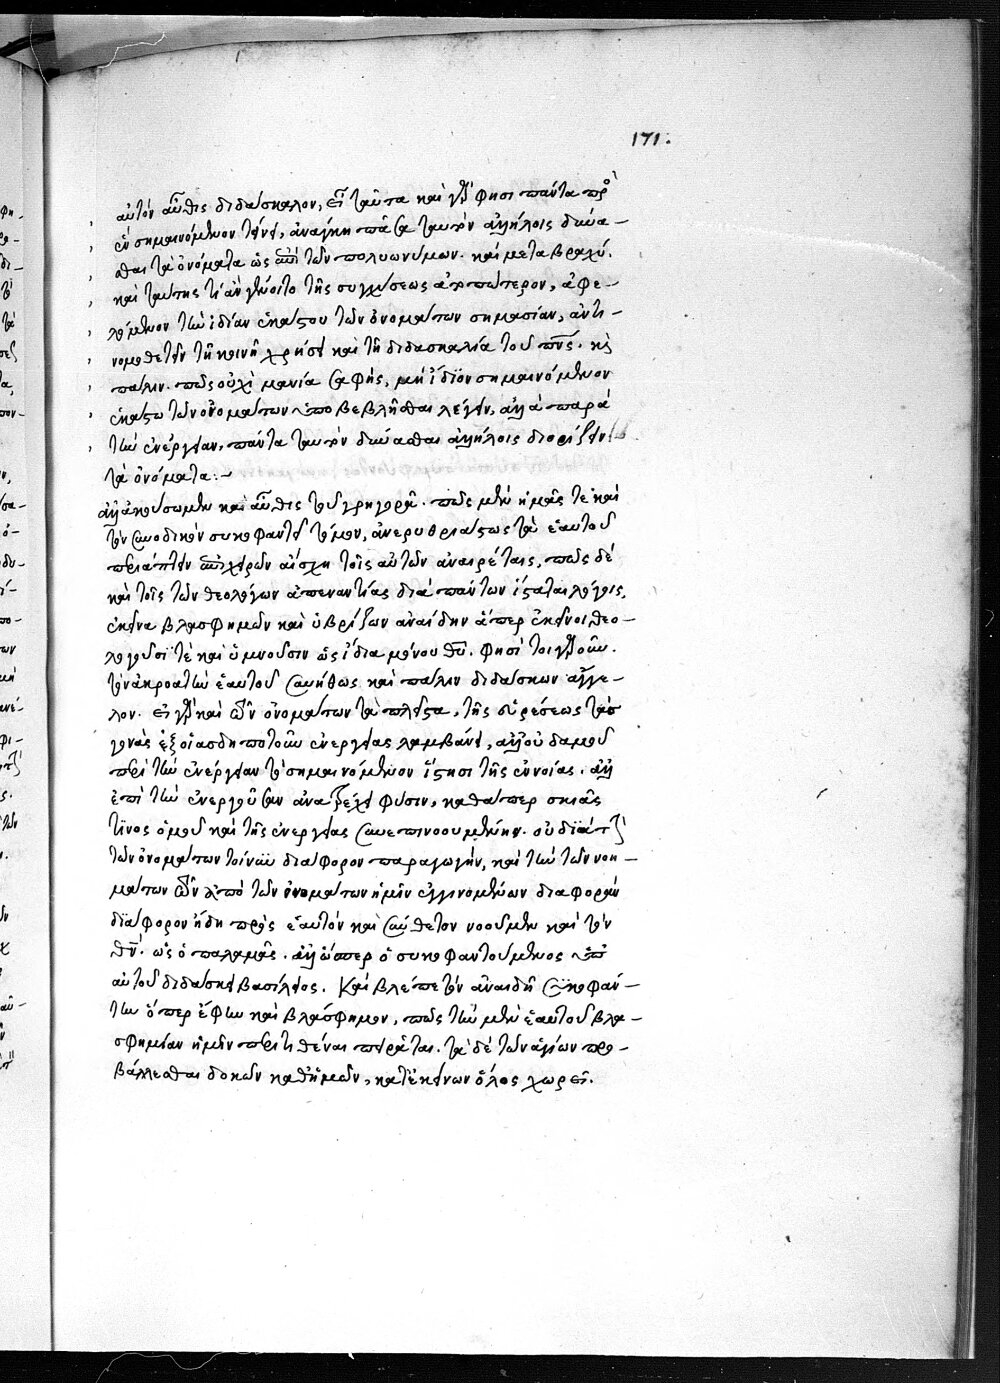 171.
αὐτόν αὖθις διδάσκαλον, εἰ ταῦτα καὶ γὰρ φησι πάντα πρὸς
ἓν σημαινόμενον τείνει, ἀνάγκη πᾶσα ταυτὸν ἀλλήλοις δύνα-
σθαι τὰ ὀνόματα ὡς ἐπὶ τῶν πολυωνύμων. καὶ μετὰ βραχύ.
καὶ ταύτης τί ἂν γένοιτο τῆς συγχύσεως ἀτοπώτερον, ἀφε-
λόμενον τὴν ἰδίαν ἑκάστου τῶν ὀνομάτων σημασίαν, ἀντι-
νομοθετεῖν τῇ κοινῇ χρήσει καὶ τῇ διδασκαλία τοῦ πνς. καὶ
πάλιν. πῶς οὐχὶ μανία σαφής, μὴ ἴδϊον σημαινόμενον
ἑκάστω τῶν ὀνομάτων ὑποβεβλῆσθαι λέγειν, ἀλλὰ παρὰ
τὴν ἐνέργειαν, πάντα ταυτὸν δύνασθαι ἀλλήλοις διορίζειν
τὰ ὀνόματα:-
ἀλλ' ἀκούσωμεν καὶ αὖθις τοῦ γρηγορᾶ. πῶς μὲν ἡμᾶς τὲ καὶ
τὴν συνοδικὸν συκοφαντεῖ τόμον, ἀνερυθριάστως τὰ ἑαυτοῦ
περιάπτειν ἐπιχειρῶν αἴσχη τοῖς αὐτῶν ἀναιρέταις, πῶς δὲ
καὶ τοῖς τῶν θεολόγων ἀπεναντίας διὰ πάντων ἵσταται λόγοις,
ἐκεῖνα βλασφημῶν καὶ ὑβρίζων ἀναίδην ἅπερ ἐκεῖνοι θεο-
λογοῦσί τὲ καὶ ὑμνοῦσιν ὡς ἴδια μόνου θῦ. φησὶ τοιγαροῦν.
τὸν ἀκροατὴν ἑαυτοῦ συνήθως καὶ πάλιν διδάσκων ἄγγε-
λον. εἰ γὰρ καὶ τῶν ὀνομάτων τὰ πλεῖστα, τῆς εὑρέσεως τὰς
γονὰς ἐξ οἱασδηποτοῦν ἐνεργείας λαμβάνει, ἀλλ' οὐδαμοῦ
περὶ τὴν ἐνέργειαν τὸ σημαινόμενον ἵστησι τῆς ἐννοίας. ἀλλ'
ἐπὶ τὴν ἐνεργοῦσαν ἀνατρέχει φύσιν, καθάπερ σκιᾶς
τϊνος ὁμοῦ καὶ τῆς ἐνεργείας συνεπινοουμένης. οὐ διὰ
τῶν ὀνομάτων τοίνυν διάφορον παραγωγήν, καὶ τὴν τῶν νοη-
μάτων τῶν ἀπὸ τῶν ὀνομάτων ἡμῖν ἐγγινομένων διαφοράν
διάφορον ἤδη πρὸς ἑαυτόν καὶ σύνθετον νοοῦμεν καὶ τὸν
θν. ὡς ὁ παλαμᾶς. ἀλλ' ὥσπερ ὁ συκοφαντούμενος ὑπ'
αὐτοῦ διδάσκει βασίλειος. Καὶ βλέπε τὸν ἀναιδῆ συκοφάν-
την ὅπερ ἔφην καὶ βλάσφημον, πῶς τὴν μὲν ἑαυτοῦ βλα-
σφημίαν ἡμῖν περιτιθέναι πειρᾶται. τὰ δὲ τῶν ἁγίων προ-
βάλλεσθαι δοκῶν καθ' ἡμῶν, κατ' ἐκείνων ὅλος χωρεῖ.